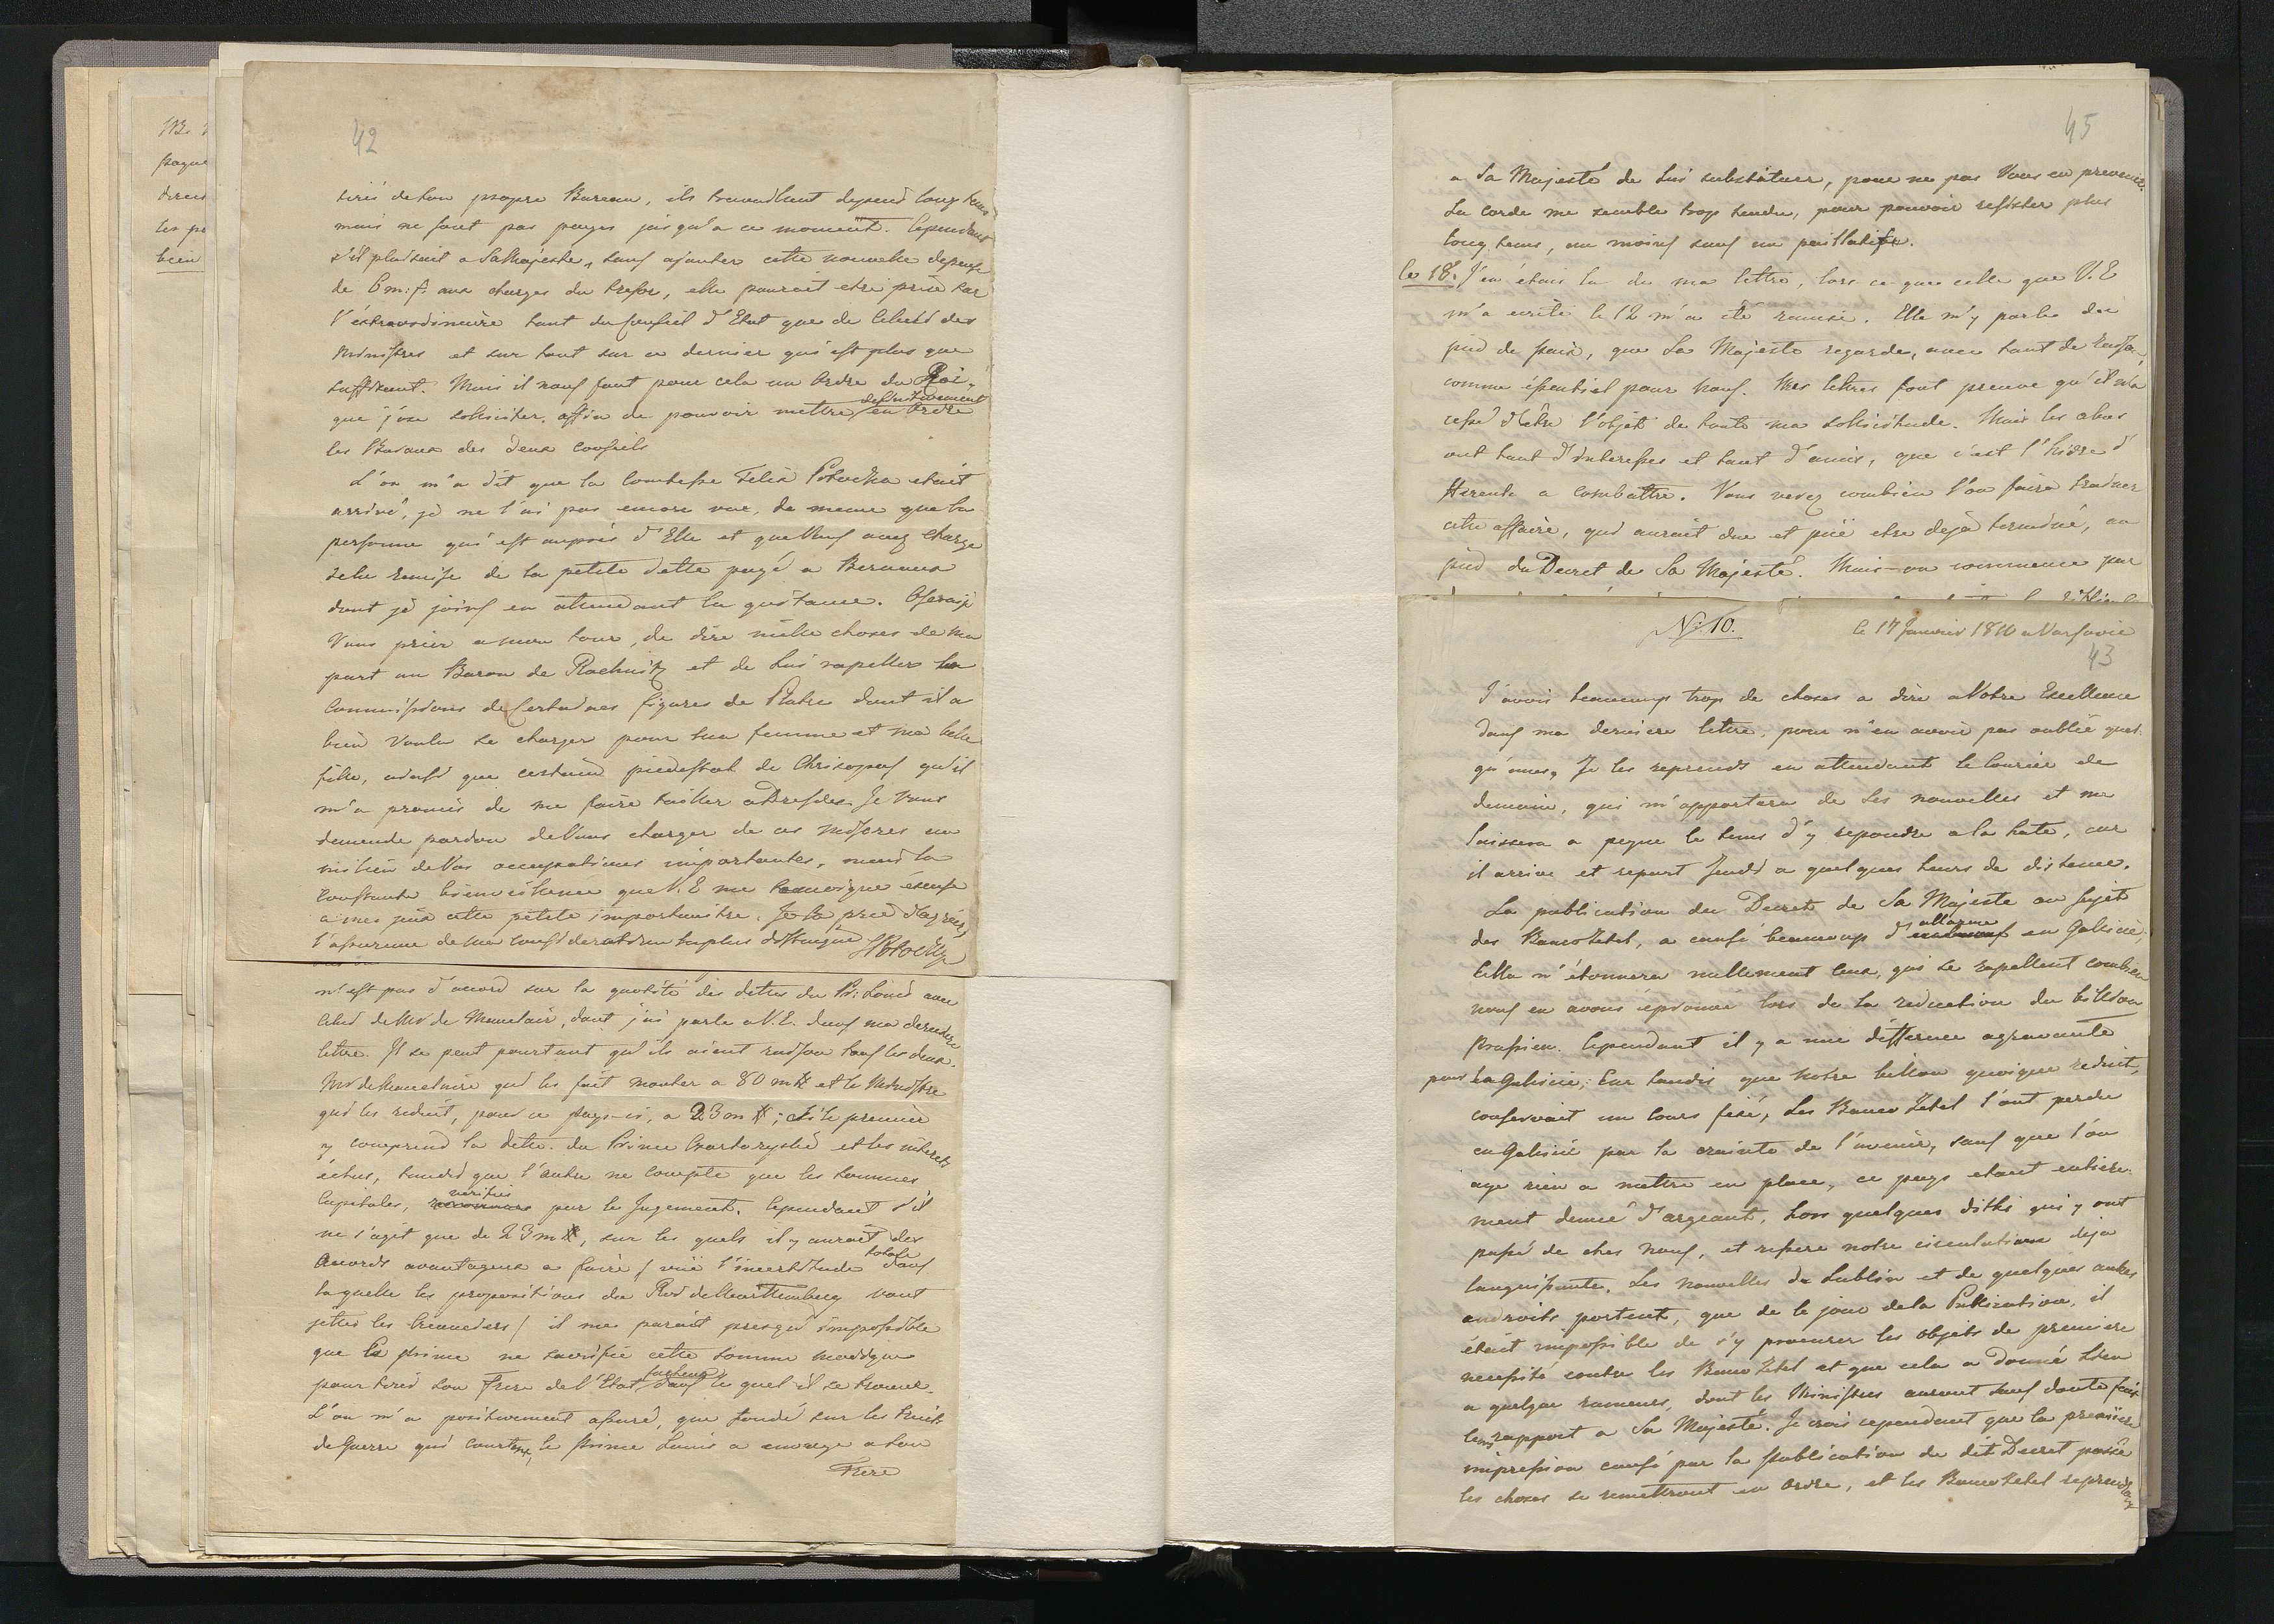 42
tirés de ton propre Bureau, ils travaillent depuis long tems
mais ne sont pas payés jusqu'a ce moment. Cependant
s'il plaisait a Sa Majesté, sans ajouter cette nouvelle depense
de 6 m: f. aux charges du tresor, elle pourait etre prise sur
l'extraordinaire tant du Conseil d'Etat que de celui des
Ministres et sur tout sur ce dernier qui est plus que
suffisant. Mais il nous faut pour cela un Ordre du Roi,
que j'ose solliciter, affin de pouvoir mettre definitivement en Ordre
les Bureaux des deux conseils
L'on m'a dit que la Comtesse Felix Potocka etait
arrivé, je ne l'ai pas encore vue, de meme que la
personne qui est aupres d'Elle et que Vous avez chargé
de la remise de la petite dette payé a Bernaux
dont je joins en attendant la quitance. Oserais-je
Vous prier a mon tour, de dire mille choses de ma
part au Baron de Racknitz et de lui rapeller les
Commissions de Certaines figures de Platre dont il a
bien voulu se charger pour ma femme et ma belle
fille, ainsi que certain piedestal de Chrisopras qu'il
m'a promis de me faire tailler a Dresde. Je Vous
demande pardon de Vous charger de ces miseres au
milieu de Vos occupations importantes, mais la
constante bienveillance que V. E me temoigne excuse
a mes yeux cette petite importunité. Je la prie d'agréer
l'assurance de ma consideration la plus distinguée SPotocky
n'est pas d'accord sur la quotité des dettes du Pr: Louis avec
celui de Mr de Manclair, dont j'ai parlé a V. E. dans ma derniere
lettre. Il se peut pourtant qu'ils aient raison tous les deux.
Mr de Mauclaire qui les fait monter a 80 m # et le Ministre
qui les reduit, pour ce pays-ci, a 23 m #; si le premier
y comprend la dette du Prince Czartoryski et les interets
échus, tandis que l'autre ne compte que les sommes
Capitales, verifiés par le Jugement. Cependant s'il
ne s'agit que de 23 m #, sur les quels il y auroit des
Accords avantageux a faire / vüe l'incertitude totale dans
laquelle les propositions du Roi de Wurttemberg vont
jetter les Creanciers / il me parait presqu'impossible
que le prince ne sacrifie cette somme modique
pour tirer son Frere de l'Etat facheux dans le quel il se trouve.
L'on m'a positivement assuré, que fondé sur les bruits
de Guerre qui courent, le Prince Louis a envoyé a son
Frere
45
a Sa Majesté de lui substituer, pour ne pas Vous en prevenir.
La corde me semble trop tendue, pour pouvoir resister plus
long tems, au moins sans un paillatif.
le 18. J'en étais la de ma lettre, lors ce que celle que V. E
m'a ecrite le 12 m'a été remise. Elle m'y parle du
pied de paix, que Sa Majesté regarde, avec tant de raison,
comme éssentiel pour nous. Mes lettres font preuve qu'il n'a
cessé d'être l'objet de toute ma sollicitude. Mais les abus
ont tant d'interesses et tant d'amis, que c'est l'hidre d'
Hercule a combattre. Vous verez combien l'on faira trainer
cette affaire, qui aurait due et püe etre déja terminé, au
pied du Decret de Sa Majesté. Mais on commence par
N: 10.
le 17 Janvier 1810 a Varsovie
43
J'avois beaucoup trop de choses a dire a Votre Excellence
dans ma derniere lettre, pour n'en avoir pas oublié quel-
qu'unes. Je les reprends en attendant le Courier de
demain, qui m'apportera de Ses nouvelles et me
laissera a peyne le tems d'y repondre a la hate, car
il arrive et repart Jeudi a quelques heurs de distance.
La publication du Decret de Sa Majesté au Sujet
des BancoZetel, a causé beaucoup d'allarme en Gallicie,
Cella n'étonnera nullement ceux, qui se rapellent combien
nous en avons éprouvé lors de la reduction du billon
Prussien. Cependant il y a une difference agravante
pour la Galicie; Car tandis que notre billon quoique reduit,
conservait un Cours fixé, les BancoZetel l'ont perdu
en Galicie par la crainte de l'avenir, sans que l'on
aye rien a mettre en place, ce pays etant entiere-
ment denué d'argeant, hors quelques ditki qui y ont
passé de chez nous, et resserre notre circulation deja
languissante. Les nouvelles de Lublin et de quelques autres
endroits portent, que de le jour de la Publication, il
était impossible de s'y procurer les objets de premiere
necessité contre les BancoZetel et que cela a donné lieu
a quelque rumeurs, dont les Ministres auront sans doute fait
leur rapport a Sa Majesté. Je crois cependant que la premiere
impression causé par la Publication du dit Decret passée
les choses se remettront en Ordre, et les BancoZetel reprendront